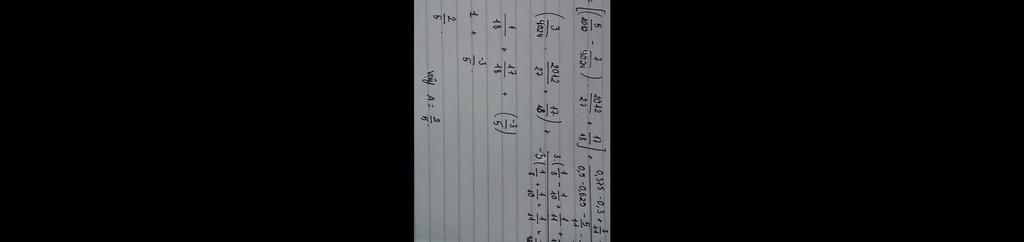 = [(5/2012 - 7/4024) . 2012/27 + 17/18] + (0,375 - 0,3 + 3/11
0,5 - 0,625 - 5/11 -
(3/4024 . 2012/27 + 17/18) + 3.(1/8 - 1/10 + 1/11 +
-5(1/8 + 1/10 + 1/11 +
1/18 + 17/18 + (-3/5)
1 + -3/5.
2/5.
Vậy A = 2/5.